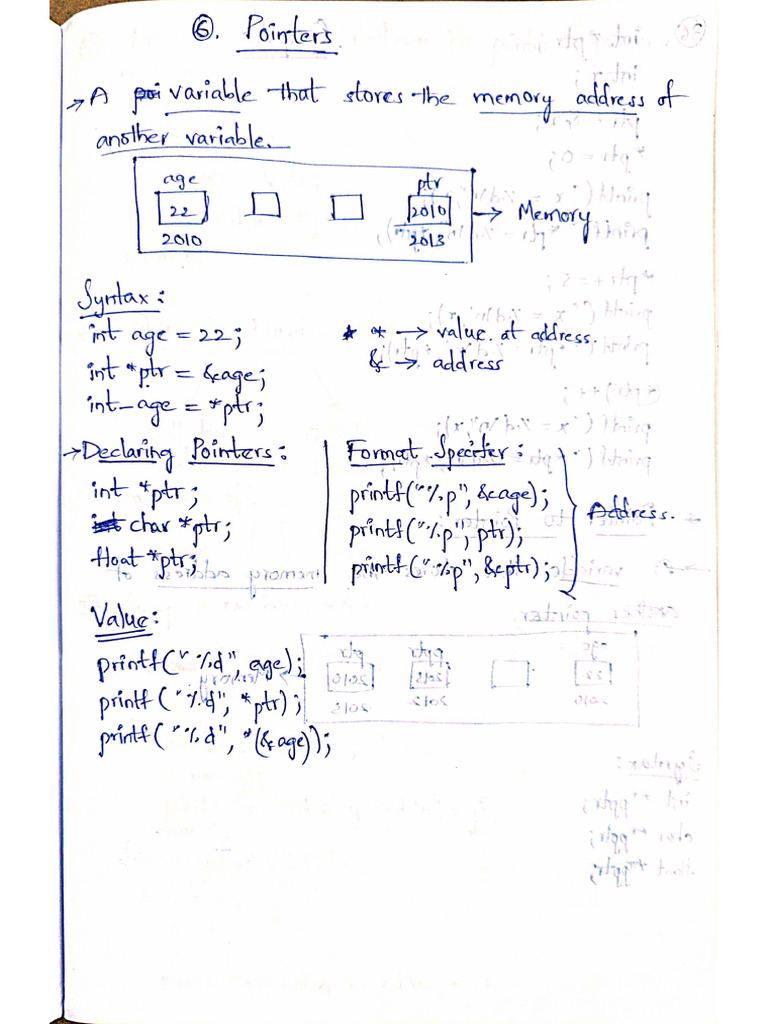 ⑥. Pointers.
→ A variable that stores the memory address of
another variable.
age ptr
22 2010 → Memory
2010 2013
Syntax:
int age = 22; * → value at address.
int *ptr = &age; & → address
int _age = *ptr;
→ Declaring Pointers: Format Specifier:
int *ptr; printf("%p", &age);
char *ptr; printf("%p", ptr); Address.
float *ptr; printf("%p", &ptr);
Value:
printf("%d", age);
printf("%d", *ptr);
printf("%d", *(&age));